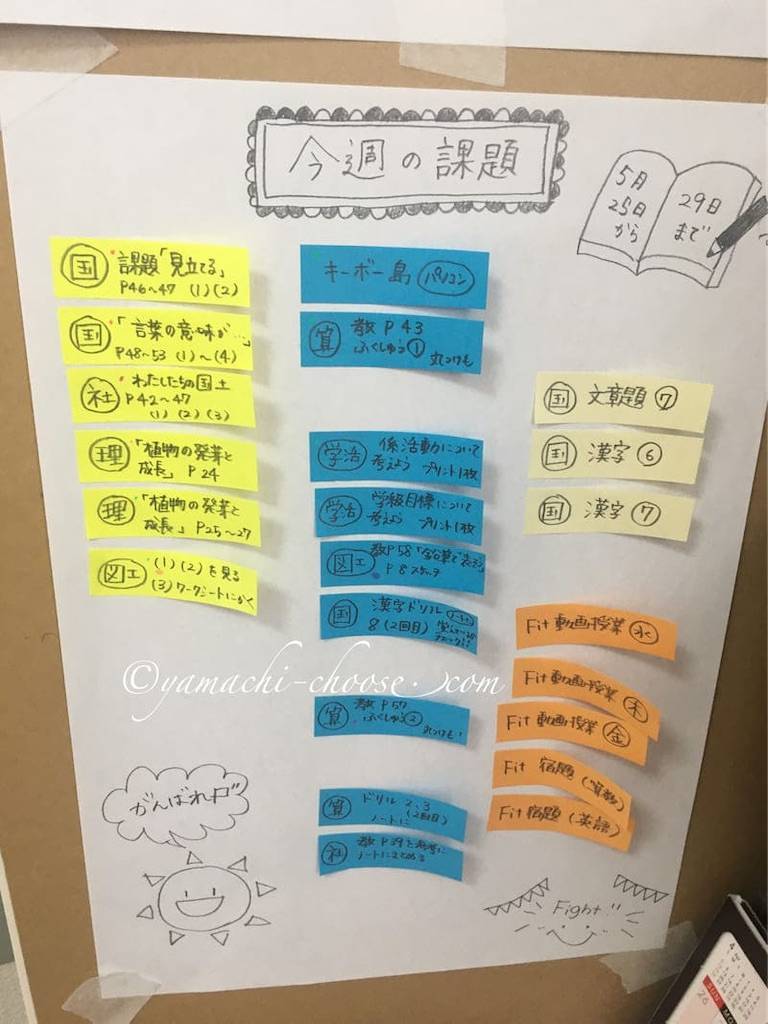 今週の課題
5月
25日
から
29日
まで
国 課題「見立てる」
P46~47 (1)(2)
国 「言葉の意味が…」
P48~53 (1)~(4)
社 わたしたちの国土
P42~47
(1)(2)(3)
理 「植物の発芽と
成長」 P24
理 「植物の発芽と
成長」 P25~27
図工 (1)(2)を見る
(3)ワークシートにかく
キーボー島 パソコン
算 教P43
ふくしゅう① 丸つけも
学活 係活動について
考えよう プリント1枚
学活 学級目標について
考えよう プリント1枚
図工 教P58「鉛筆で表そう」
P8 スケッチ
国 漢字ドリル ノート
8(2回目)
算 教P57
ふくしゅう② 丸つけも!
算 ドリル2、3
(2回目)
ノートに
社 教P39を参考に
ノートにまとめる
国 文章題⑦
国 漢字⑥
国 漢字⑦
Fit 動画授業 水
Fit 動画授業 木
Fit 動画授業 金
Fit 宿題(算数)
Fit 宿題(英語)
©yamachi-choose.com
がんばれ
Fight!!
SUN
26